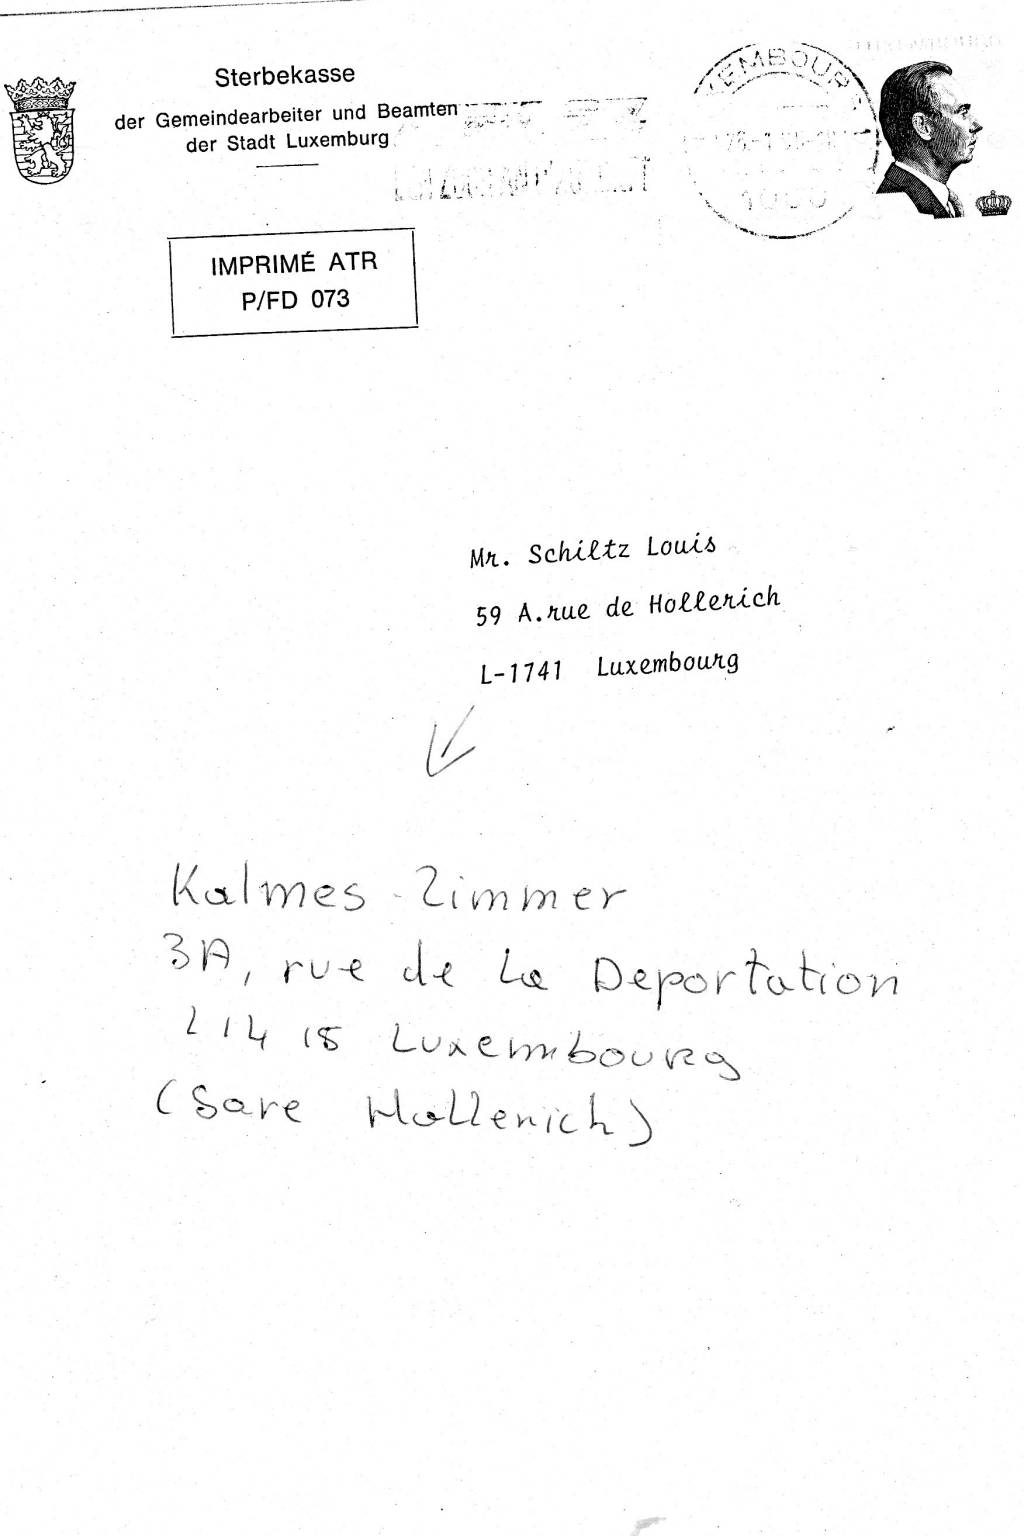 Sterbekasse
der Gemeindearbeiter und Beamten
der Stadt Luxemburg
IMPRIMÉ ATR
P/FD 073
Mr. Schiltz Louis
59 A.rue de Hollerich
L-1741 Luxembourg
Kalmes - Zimmer
3A, rue de la Deportation
L 14 15 Luxembourg
(Gare Hollerich)